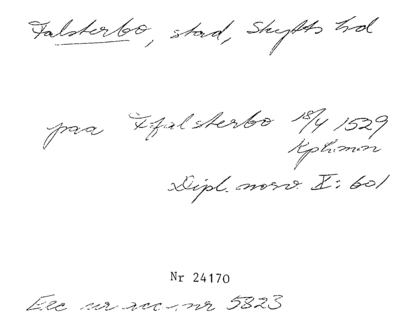 Falsterbo, stad, Skytts hd
paa Ffalsterbo 18/4 1529
Kphmn
Dipl. norv. X: 601
Nr 24170
Exc ur acc.nr 5823